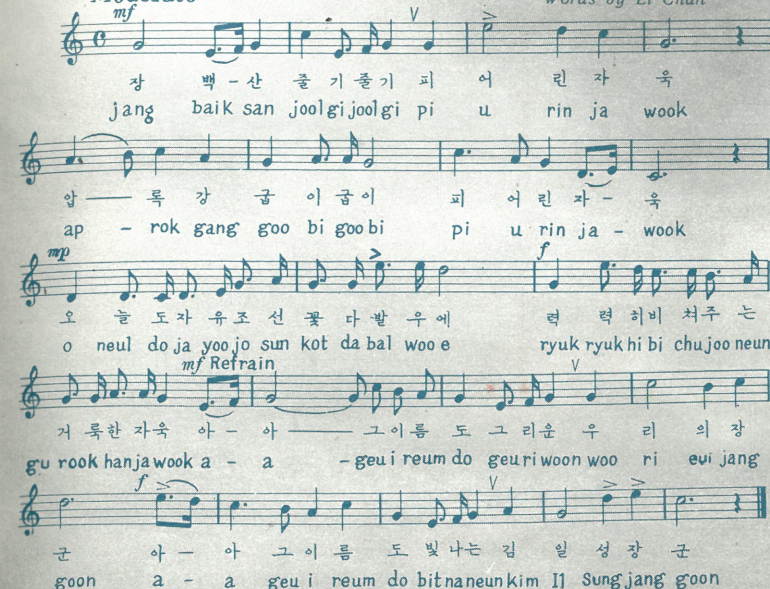 Moderato Words by Li Chan
mf
장 백 – 산 줄 기 줄 기 피 어 린 자 욱
jang baik san joolgi joolgi pi u rin ja wook
압 — 록 강 굽 이 굽 이 피 어 린 자 – 욱
ap – rok gang goo bi goo bi pi u rin ja – wook
mp f
오 늘 도 자 유 조 선 꽃 다 발 우 에 력 력 히 비 쳐 주 는
o neul do ja yoo jo sun kot da bal woo e ryuk ryuk hi bi chu joo neun
mf Refrain
거 룩한 자욱 아 – 아 — 그 이 름 도 그 리 운 우 리 의 장
gu rook hanjawook a – a – geu i reum do geuriwoon woo ri eui jang
f
군 아 – 아 그 이 름 도 빛 나 는 김 일 성 장 군
goon a – a geu i reum do bitnaneun kim Il Sung jang goon